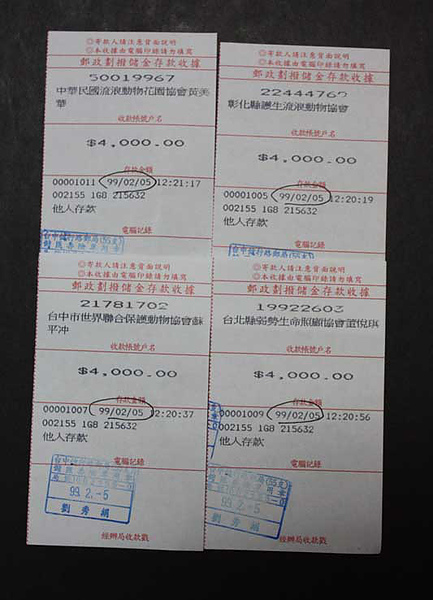 ◎寄款人請注意背面說明
◎本收據由電腦印錄請勿填寫
郵政劃撥儲金存款收據
50019967
中華民國流浪動物花園協會黃美
華
收款帳號戶名
$4,000.00
存款金額
00001011 99/02/05 12:21:17
002155 1G8 215632
他人存款
電腦記錄
◎寄款人請注意背面說明
◎本收據由電腦印錄請勿填寫
郵政劃撥儲金存款收據
22444762
彰化縣護生流浪動物協會
收款帳號戶名
$4,000.00
存款金額
00001005 99/02/05 12:20:19
002155 1G8 215632
他人存款
電腦記錄
◎寄款人請注意背面說明
◎本收據由電腦印錄請勿填寫
郵政劃撥儲金存款收據
21781702
台中市世界聯合保護動物協會蘇
平冲
收款帳號戶名
$4,000.00
存款金額
00001007 99/02/05 12:20:37
002155 1G8 215632
他人存款
電腦記錄
99. 2. -5
劉秀絹
經辦局收款戳
◎寄款人請注意背面說明
◎本收據由電腦印錄請勿填寫
郵政劃撥儲金存款收據
19922603
台北縣弱勢生命照顧協會董悅琪
收款帳號戶名
$4,000.00
存款金額
00001009 99/02/05 12:20:56
002155 1G8 215632
他人存款
電腦記錄
99. 2. -5
劉秀絹
經辦局收款戳